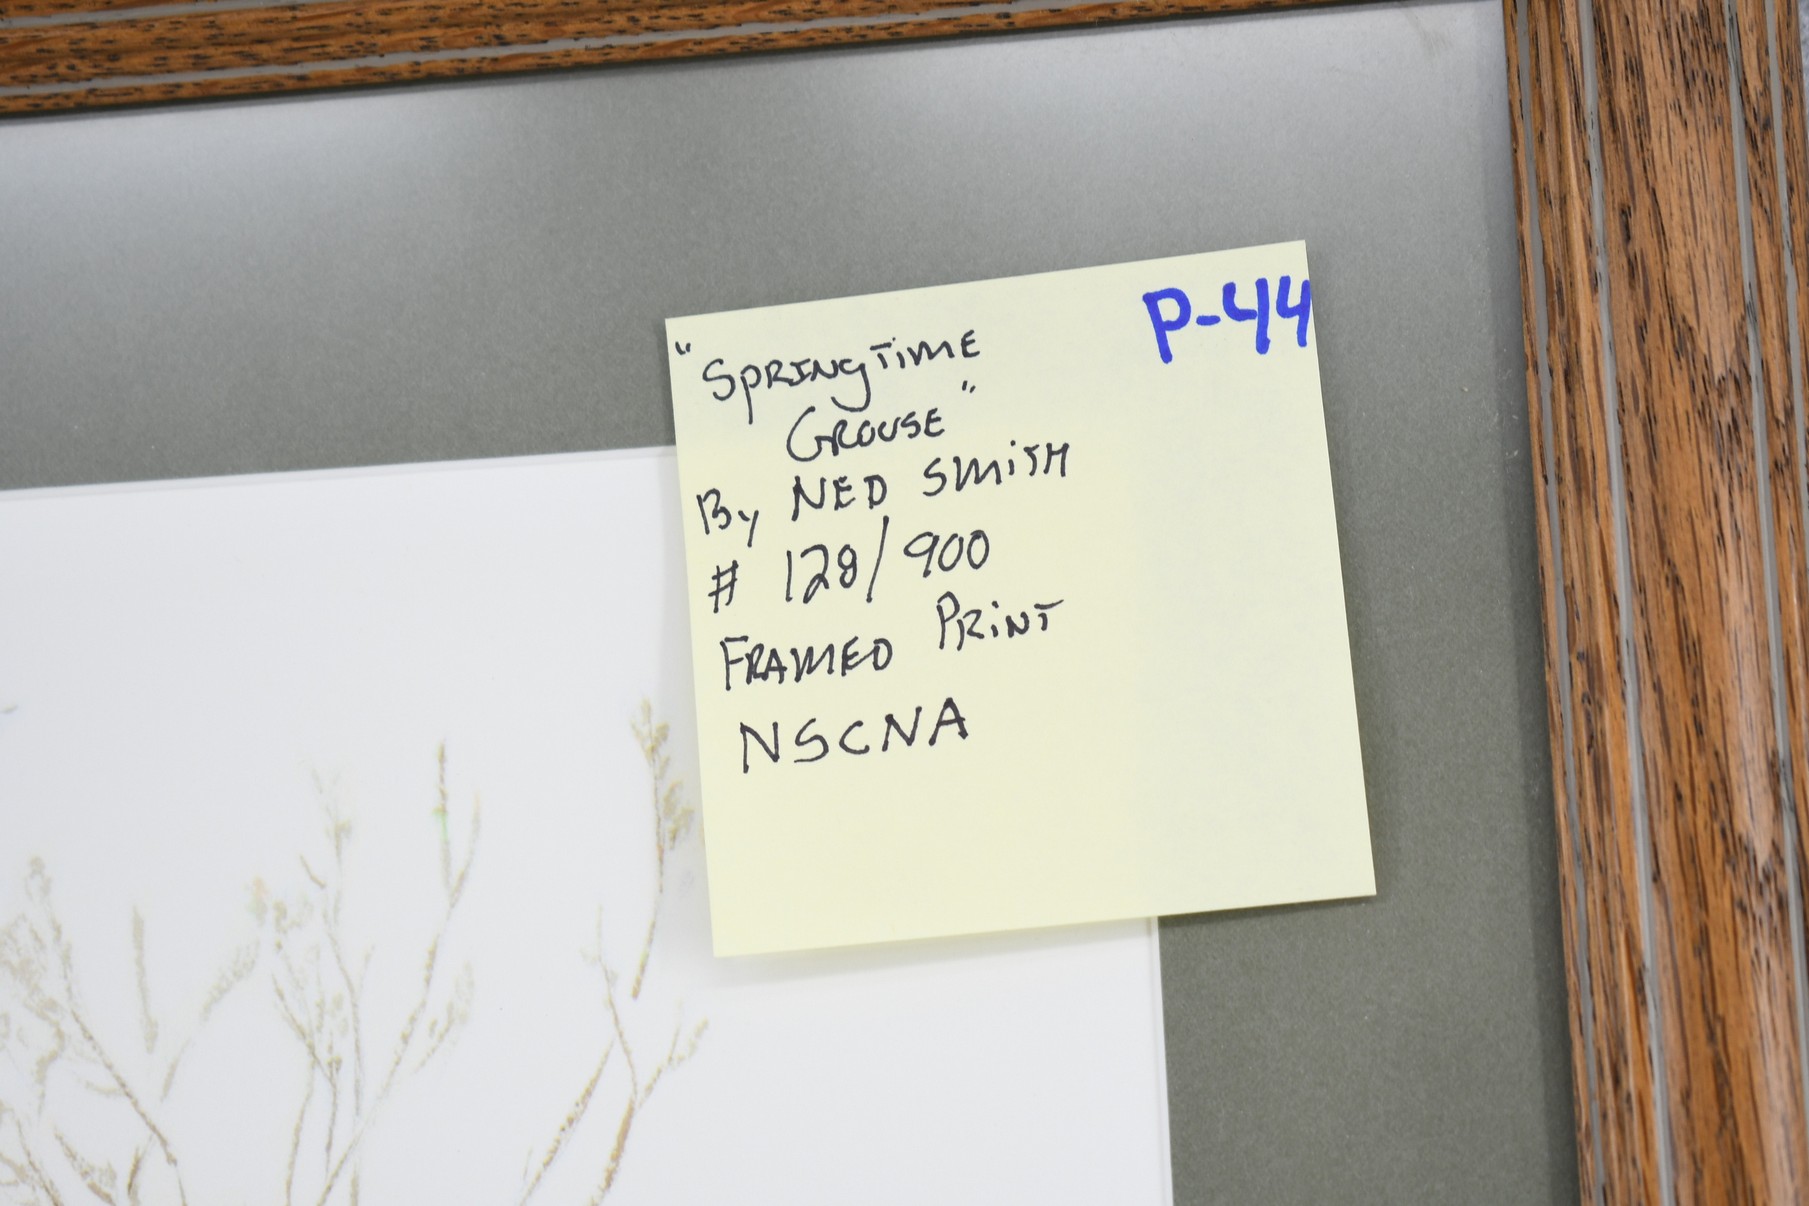 P-44
"Springtime
Grouse"
By NED SMITH
# 128/900
FRAMED PRINT
NSCNA